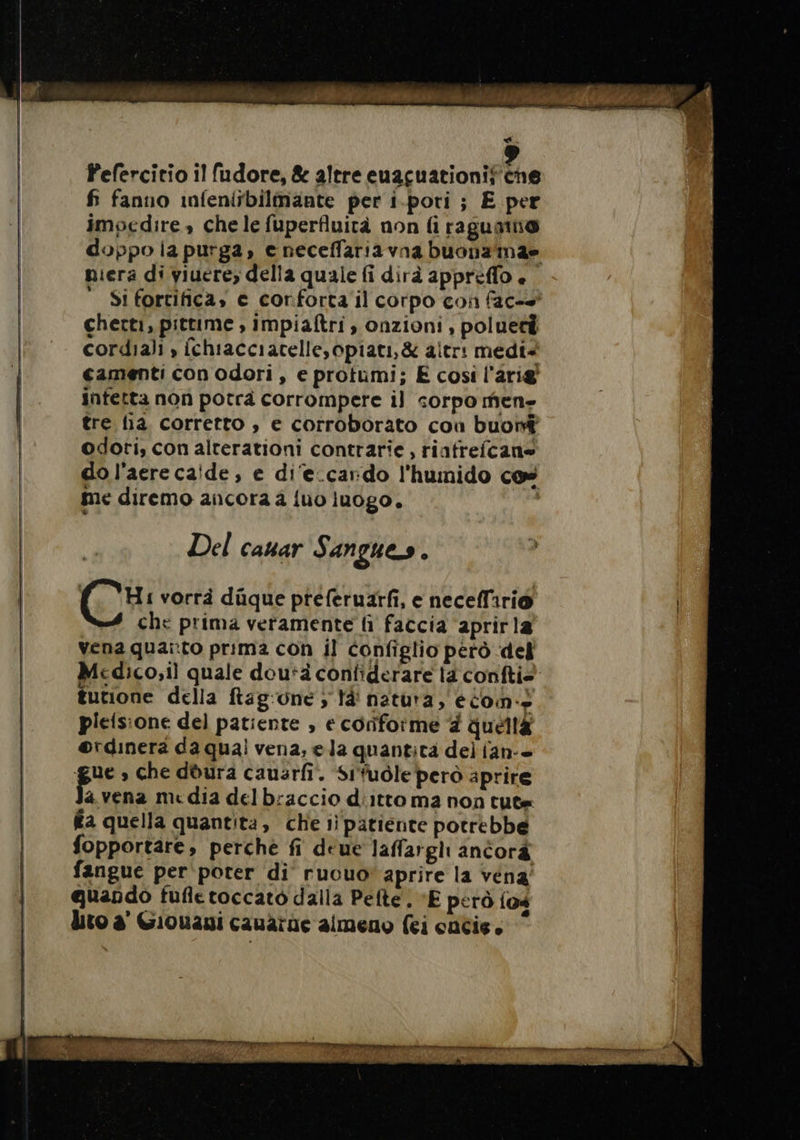 9
l'esercitio il sudore, & altre euacuationi, che
si fanno insensibilmente per i pori ; E per
impedire, che le superfluità non si ragunino
doppo la purga, è necessaria vna buona ma-
niera di viuere, della quale si dirà appresso.
Si fortifica, e conforta il corpo con sac-
chetti, pittime, impiastri, onzioni, polueri
cordiali, schiacciatelle, opiati, & altri medi-
camenti con odori, e profumi; E così l'aria
infetta non potrà corrompere il corpo men-
tre sia corretto, e corroborato con buoni
odori, con alterationi contrarie, rinfrescan-
do l'aere calde, e disseccando l'humido co-
me diremo ancora a suo luogo.
Del cauar Sangue.
CHi vorrà dũque preseruarsi, è necessario
che prima veramente si faccia aprir la
vena quanto prima con il consiglio però del
Medico, il quale dourà considerare la consti-
tutione della stagione, la natura, e com-
plessione del patiente, e conforme à quella
ordinerà da qual vena, e la quantità del san-
gue, che dourà cauarsi. Si suole però aprire
la vena media del braccio dritto ma non tut-
ta quella quantità, che il patiente potrebbe
sopportare, perche si deue lassargli ancora
sangue per poter di nuouo aprire la vena
quando fusse toccato dalla Peste. E però so-
lito a' Giouani cauarne almeno sei oncie.